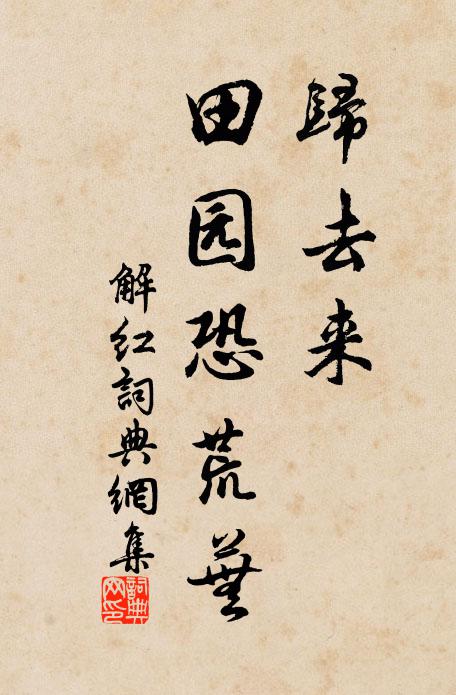 歸去来
田园恐荒蕪
解红詞典網集
詞典网印